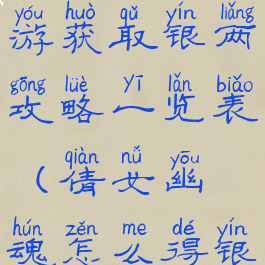 yóu huò qǔ yín liǎng
游获取银两
gōng lüè yī lǎn biǎo
攻略一览表
qiàn nǚ yōu
（倩女幽
hún zěn me dé yín
魂怎么得银